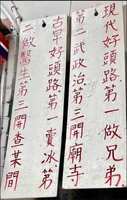 現代好頭路第一做兄弟
第二武政治第三開廟寺
古早好頭路第一賣冰第
二做醫生第三開查某間